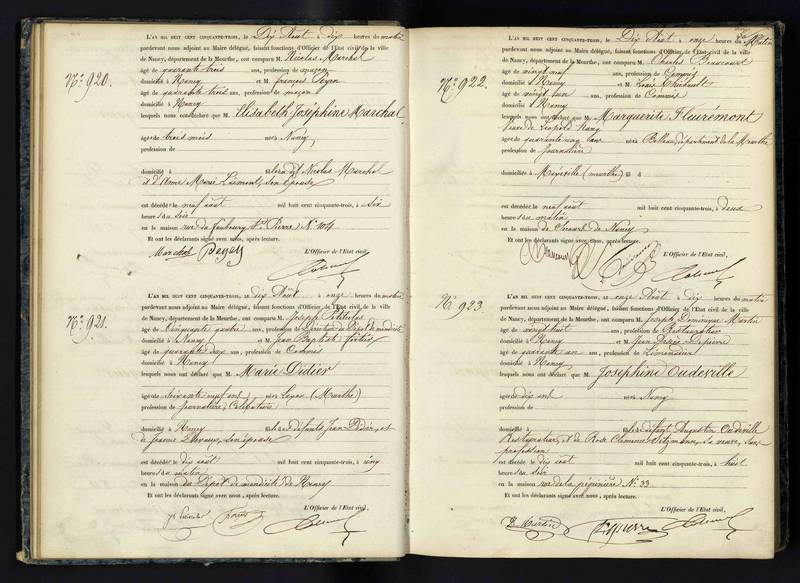 N° 920.
L'AN MIL HUIT CENT CINQUANTE-TROIS, le Dix Août à dix heures du matin
pardevant nous adjoint au Maire délégué, faisant fonctions d'Officier de l'Etat civil de la ville
de Nancy, département de la Meurthe, ont comparu M. Nicolas Marchal
âgé de quarante trois ans, profession de maçon
domicilié à Nancy et M. François
âgé de quarante trois ans, profession de maçon
domicilié à Nancy
lesquels nous ont déclaré que M. Elisabeth Joséphine Marchal
âgée de trois mois née à Nancy
profession de
domicilié à fille de Nicolas Marchal
et d'Anne Marie son épouse
est décédé le neuf août mil huit cent cinquante-trois, à six
heures du soir
en la maison rue du faubourg St Pierre N° 104
Et ont les déclarants signé avec nous, après lecture.
L'Officier de l'Etat civil,
Marchal
N° 921.
L'AN MIL HUIT CENT CINQUANTE-TROIS, le dix Août à onze heures du matin
pardevant nous adjoint au Maire délégué, faisant fonctions d'Officier de l'Etat civil de la ville
de Nancy, département de la Meurthe, ont comparu M. Joseph
âgé de Cinquante quatre ans, profession de Directeur du Dépôt de mendicité
domicilié à Nancy et M. Jean Baptiste
âgé de quarante ans, profession de Commis
domicilié à Nancy
lesquels nous ont déclaré que M. Marie Didier
âgée de soixante neuf ans née à Layes (Meurthe)
profession de Journalière, Célibataire
domiciliée à Nancy fille de défunts Jean Didier, et
de Jeanne son épouse
est décédée le dix août mil huit cent cinquante-trois, à cinq
heures du matin
en la maison du Dépôt de mendicité de Nancy
Et ont les déclarants signé avec nous, après lecture.
L'Officier de l'Etat civil,
N° 922.
L'AN MIL HUIT CENT CINQUANTE-TROIS, le Dix Août à onze heures du Matin
pardevant nous adjoint au Maire délégué, faisant fonctions d'Officier de l'Etat civil de la ville
de Nancy, département de la Meurthe, ont comparu M. Charles
âgé de vingt neuf ans, profession de Commis
domicilié à Nancy et M. Louis
âgé de vingt ans, profession de Commis
domicilié à Nancy
lesquels nous ont déclaré que M. Marguerite Fleurémont
veuve de Léopold
âgée de quarante cinq ans née à Belleau, département de la Meurthe
profession de Journalière
domiciliée à Maxéville (meurthe) fille d
est décédée le neuf août mil huit cent cinquante-trois, à deux
heures du matin
en la maison de Secours de Nancy
Et ont les déclarants signé avec nous, après lecture.
L'Officier de l'Etat civil,
N° 923.
L'AN MIL HUIT CENT CINQUANTE-TROIS, le onze Août à dix heures du matin
pardevant nous adjoint au Maire délégué, faisant fonctions d'Officier de l'Etat civil de la ville
de Nancy, département de la Meurthe, ont comparu M. Joseph Dominique Martin
âgé de vingt huit ans, profession de Restaurateur
domicilié à Nancy et M. Jean
âgé de quarante un ans, profession de Limonadier
domicilié à Nancy
lesquels nous ont déclaré que M. Joséphine Oudeville
âgée de dix ans née à Nancy
profession de
domiciliée à fille de défunt Augustin Oudeville
Restaurateur, et de Rose Clémence sa veuve, sans
profession
est décédée le dix août mil huit cent cinquante-trois, à huit
heures du soir
en la maison rue de la pépinière N° 33
Et ont les déclarants signé avec nous, après lecture.
L'Officier de l'Etat civil,